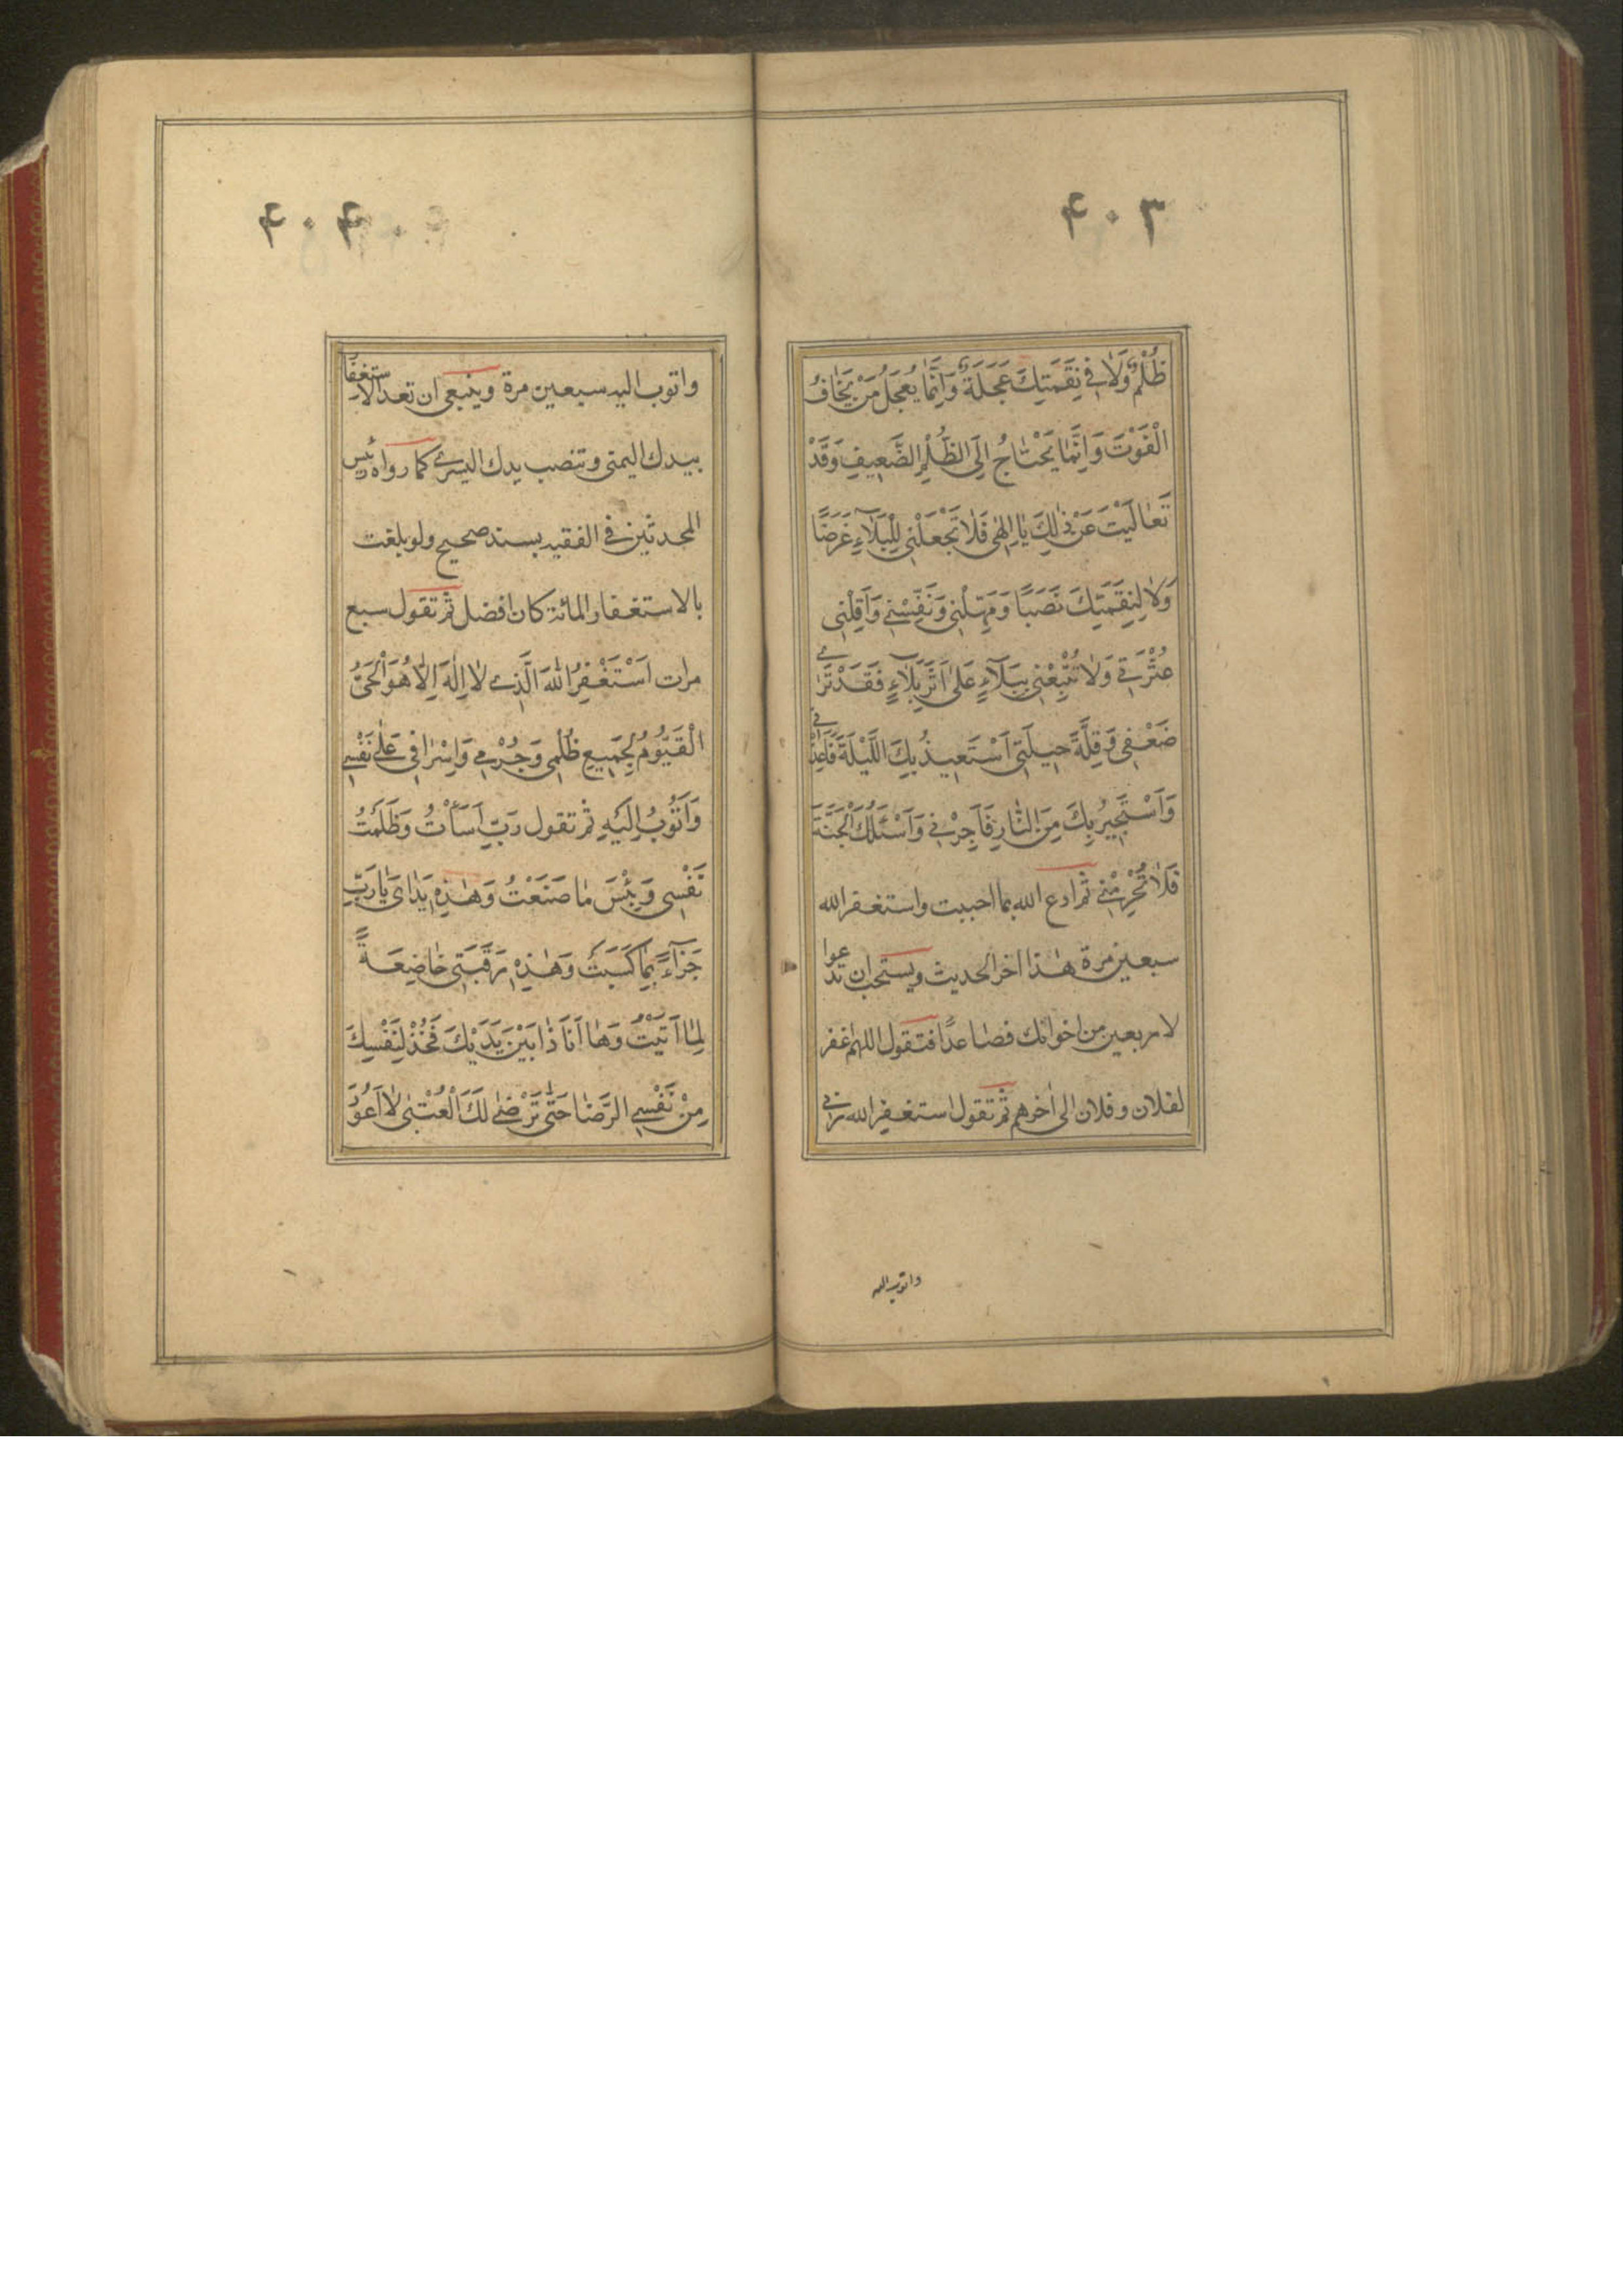 ۴۰۳
ظُلْمٌ وَلَا فِي نِقَمَتِكَ عَجَلَةٌ وَاِنَّمَا يَعْجَلُ مَنْ يَخَافُ
الْفَوْتَ وَاِنَّمَا يَحْتَاجُ اِلَى الظُّلْمِ الضَّعِيفُ وَقَدْ
تَعَالَيْتَ عَنْ ذٰلِكَ يَا اِلٰهِى فَلَا تَجْعَلْنِى لِلْبَلَآءِ غَرَضًا
وَلَا لِنِقَمَتِكَ نَصَبًا وَمَهِّلْنِى وَنَفِّسْنِى وَاَقِلْنِى
عَثْرَتِى وَلَا تُتْبِعْنِى بِبَلَآءٍ عَلٰى اَثَرِ بَلَآءٍ فَقَدْ تَرٰى
ضَعْفِى وَقِلَّةَ حِيلَتِى اَسْتَعِيذُ بِكَ اللَّيْلَةَ فَاَعِذْنِى
وَاَسْتَجِيرُ بِكَ مِنَ النَّارِ فَاَجِرْنِى وَاَسْئَلُكَ الْجَنَّةَ
فَلَا تَحْرِمْنِى ثم ادع الله بما احببت واستغفر الله
سبعين مرة هذا اخر الحديث ويستحب ان تدعوا
لاربعين من اخوانك فصاعدًا فتقول اللهم اغفر
لفلان وفلان الى اخرهم ثم تقول استغفر الله ربى
واتوب اليه
۴۰۴
واتوب اليه سبعين مرة وينبغى ان تعد الاستغفار
بيدك اليمنى وتنصب يدك اليسرى كما رواه رئيس
المحدثين فى الفقيه بسند صحيح ولو بلغت
بالاستغفار المائة كان افضل ثم تقول سبع
مرات اَسْتَغْفِرُ اللهَ الَّذِى لَا اِلٰهَ اِلَّا هُوَ الْحَىُّ
الْقَيُّومُ لِجَمِيعِ ظُلْمِى وَجُرْمِى وَاِسْرَافِى عَلٰى نَفْسِى
وَاَتُوبُ اِلَيْهِ ثم تقول رَبِّ اَسَأْتُ وَظَلَمْتُ
نَفْسِى وَبِئْسَ مَا صَنَعْتُ وَهٰذِهِ يَدَاىَ يَا رَبِّ
جَزَآءً بِمَا كَسَبَتْ وَهٰذِهِ رَقَبَتِى خَاضِعَةً
لِمَا اَتَيْتُ وَهَا اَنَا ذَا بَيْنَ يَدَيْكَ فَخُذْ لِنَفْسِكَ
مِنْ نَفْسِى الرِّضَا حَتّٰى تَرْضٰى لَكَ الْعُتْبٰى لَا اَعُودُ